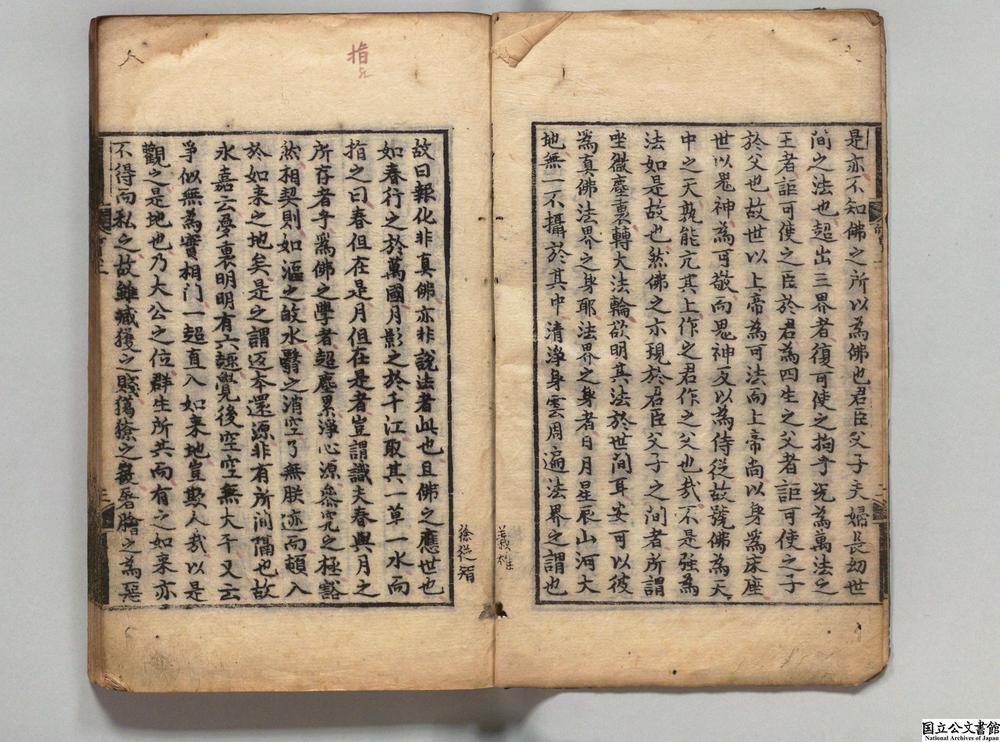 是亦不知佛之所以為佛也君臣父子夫婦長幼世
間之法也超出三界者復可使之拘乎况為萬法之
王者詎可使之臣於君為四生之父者詎可使之子
於父也故世以上帝為可法而上帝尚以身為床座
世以鬼神為可敬而鬼神反以為侍從故號佛為天
中之天孰能亢其上作之君作之父也哉不是强為
法如是故也然佛之亦現於君臣父子之間者所謂
坐微塵裏轉大法輪欲明其法於世間耳安可以彼
為真佛法界之身耶法界之身者日月星辰山河大
地無一不攝於其中清淨身雲周遍法界之謂也
故曰報化非真佛亦非說法者此也且佛之應世也
如春行之於萬國月影之於千江取其一草一水而
指之曰春但在是月但在是者豈謂識夫春與月之
所存者乎為佛之學者超塵累淨心源叅究之極豁
然相契則如漚之㱕水翳之消空了無朕迹而頓入
於如来之地矣是之謂返本還源非有所間隔也故
永嘉云夢裏明明有六趣覺後空空無大千又云
爭似無為實相門一超直入如来地豈欺人哉以是
觀之是地也乃大公之位群生所共而有之如来亦
不得而私之故雖臧獲之賤獦獠之
之為惡
指
徐從智
義
二
国立公文書館
National Archives of Japan